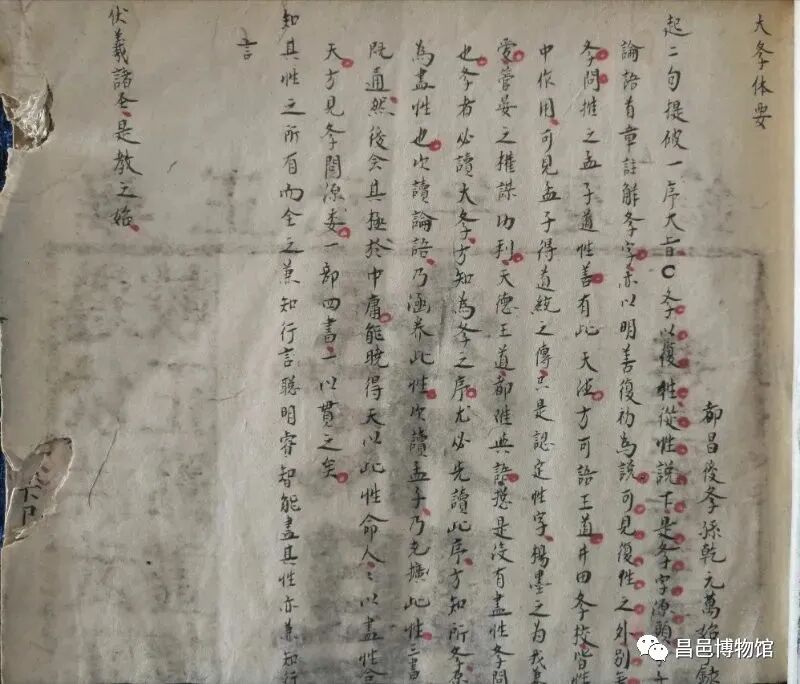 大斈体要
都昌後斈孫乾元萬 錄
起二句提破一序大旨〇斈以復性從性說下是斈字源頭 子
論語首章註解斈字亦以明善復初為說可見復性之外別無
斈問推之孟子道性善有此天德方可語王道井田斈挍皆性
中作用可見孟子得道統之傳只是認定性字楊墨之為我兼
愛管晏之權謀功利天德王道都難與語總是沒有盡性斈問
也斈者必讀大斈方知為斈之序尤必先讀此序方知所斈原
為盡性也次讀論語乃涵养此性次讀孟子乃充擴此性三書
既通然後会其極於中庸能曉得天以此性命人〻以盡性合
天方見斈問源委一部四書一以貫之矣
知其性之所有而全之兼知行言聰明睿智能盡其性亦兼知行
言
伏羲諸圣是教之始
昌邑博物馆